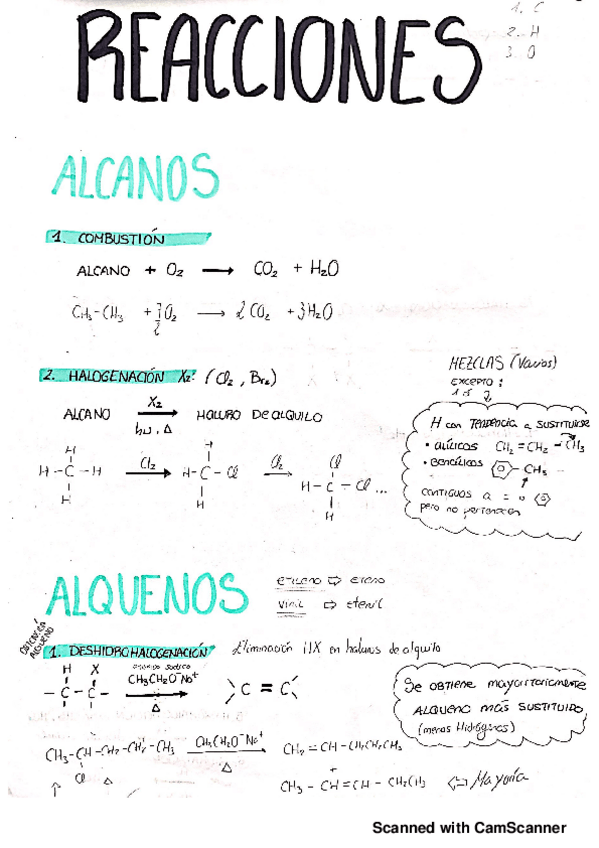 1. C
2. H
3. O
REACCIONES
ALCANOS
1. COMBUSTIÓN
ALCANO + O₂ → CO₂ + H₂O
CH₃-CH₃ + 7/2 O₂ → 2 CO₂ + 3 H₂O
2. HALOGENACIÓN X₂: (Cl₂, Br₂)
ALCANO X₂ → hυ, Δ HALURO DE ALQUILO
H
H - C - H
H
Cl₂ →
H
H - C - Cl
H
Cl₂ →
Cl
H - C - Cl ...
H
MEZCLAS (Varios)
EXCEPTO:
H con TENDENCIA a SUSTITUIRSE
• ALÍLICOS CH₂=CH₂-CH₃
• BENCÍLICOS CH₃
CONTIGUOS a = o
pero no pertenecen
ALQUENOS
etileno ⇨ eteno
vinil ⇨ etenil
OBTENCIÓN ALQUENO
1. DESHIDROHALOGENACIÓN Eliminación HX en haluros de alquilo
H X
- C - C -
CH₃CH₂O⁻Na⁺ →
Δ
C = C
Se OBTIENE mayoritariamente
ALQUENO más SUSTITUIDO
(menos Hidrógenos)
CH₃-CH-CH₂-CH₂-CH₃ CH₃CH₂O⁻Na⁺ → Δ CH₂=CH-CH₂CH₂CH₃
Cl
CH₃-CH=CH-CH₂CH₃ Mayoría
Scanned with CamScanner